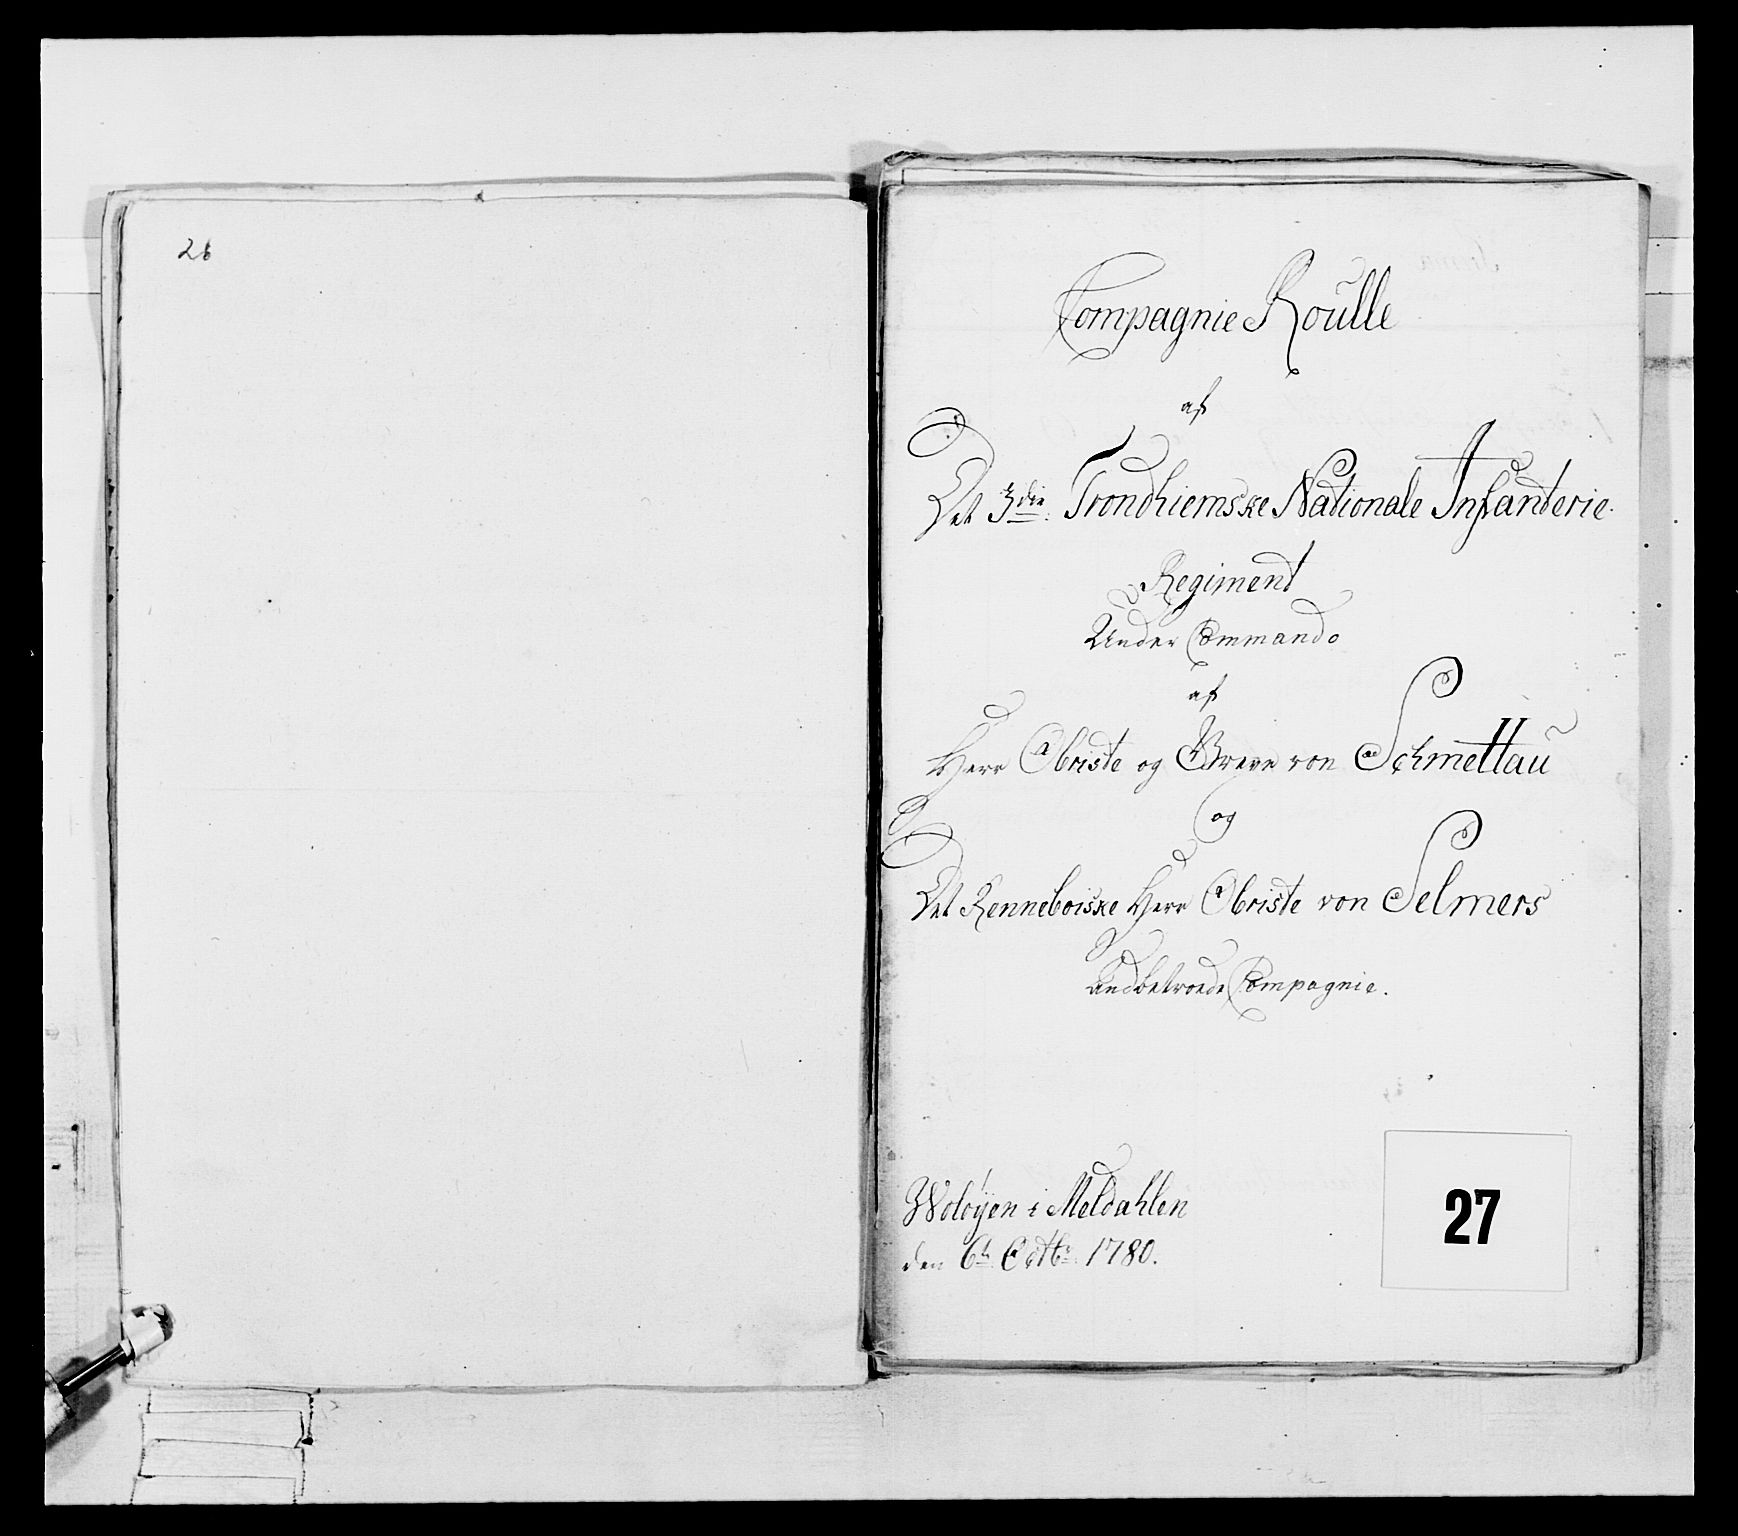 28
Compagnie Roulle
af
Det 3die Trondhiemske Nationale Infanterie
Regiment
Under Commando
af
Herr Obriste og Greve von Schmettau
og
Det Renneboiske Herr Obriste von Selmers
andbetroede Compagnie.
Woløyen i Meldahlen
den 6te Octbr 1780.
27